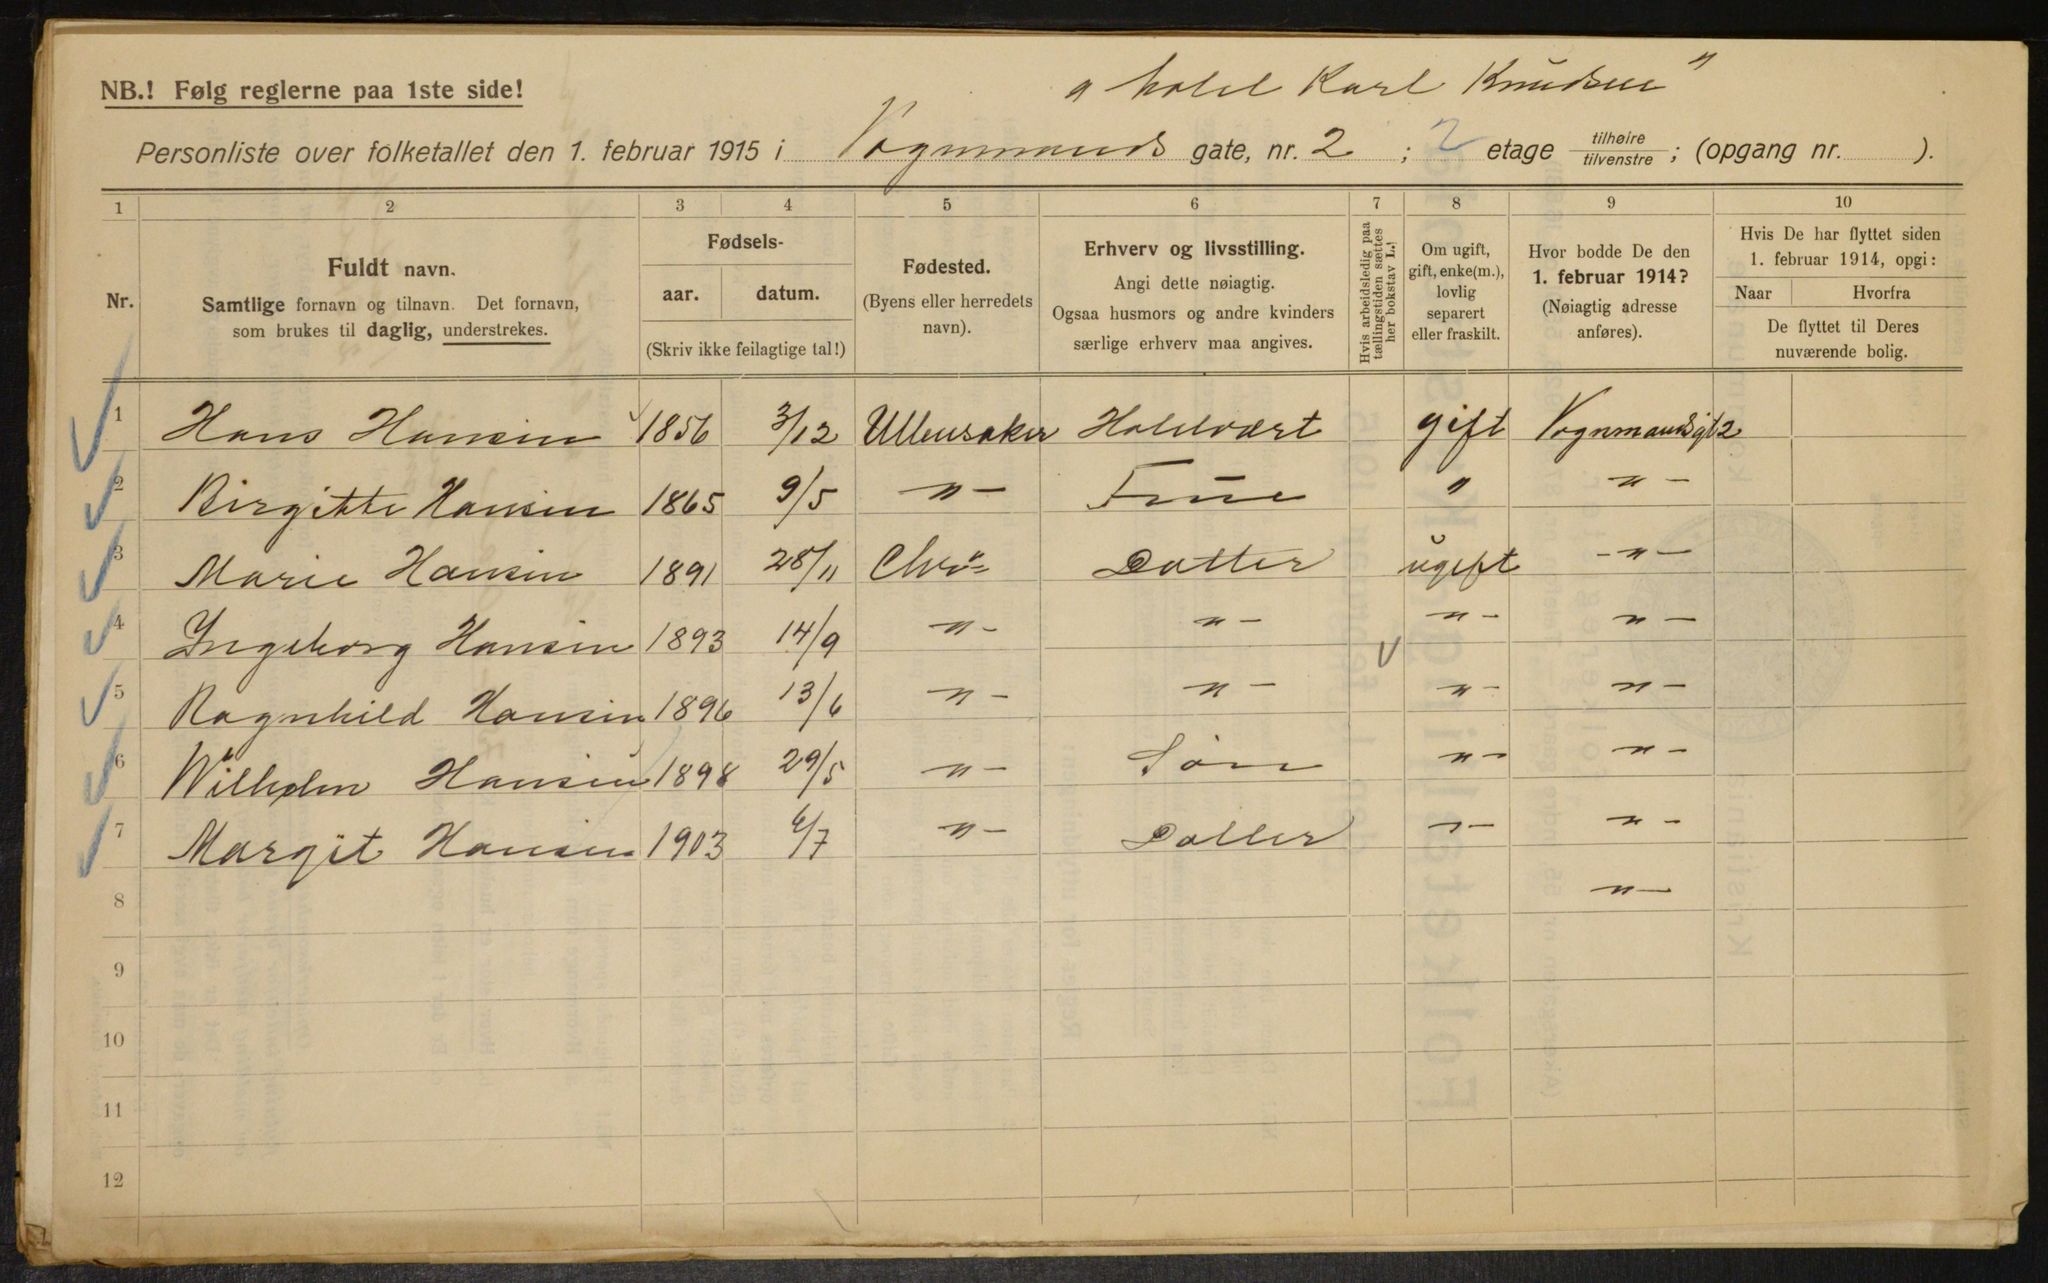 NB.! Følg reglerne paa 1ste side!
„ Hotel Karl Knudsen "
Personliste over folketallet den 1. februar 1915 i Vognmands gate, nr. 2 ; 2 etage tilhøire/tilvenstre ; (opgang nr. ).
1 2 3 4 5 6 7 8 9 10
Nr.
Fuldt navn.
Samtlige fornavn og tilnavn. Det fornavn,
som brukes til daglig, understrekes.
Fødsels-
aar. datum.
(Skriv ikke feilagtige tal!)
Fødested.
(Byens eller herredets
navn).
Erhverv og livsstilling.
Angi dette nøiagtig.
Ogsaa husmors og andre kvinders
særlige erhverv maa angives.
Hvis arbeidsledig paa
tællingstiden sættes
her bokstav L.!
Om ugift,
gift, enke(m.),
lovlig
separert
eller fraskilt.
Hvor bodde De den
1. februar 1914?
(Nøiagtig adresse
anføres).
Hvis De har flyttet siden
1. februar 1914, opgi:
Naar Hvorfra
De flyttet til Deres
nuværende bolig.
1 Hans Hansen 1856 3/12 Ullensaker Hotelvært gift Vognmandsgt 2
2 Birgitte Hansen 1865 9/5 " — Frue " " —
3 Marie Hansen 1891 28/11 Chra Datter ugift - " —
4 Ingeborg Hansen 1893 14/9 " — " — " — " —
5 Ragnhild Hansen 1896 13/6 " — " — " — " —
6 Wilhelm Hansen 1898 29/5 " — Søn " — " —
7 Margit Hansen 1903 6/7 " — Datter " — " —
8 " —
9
10
11
12